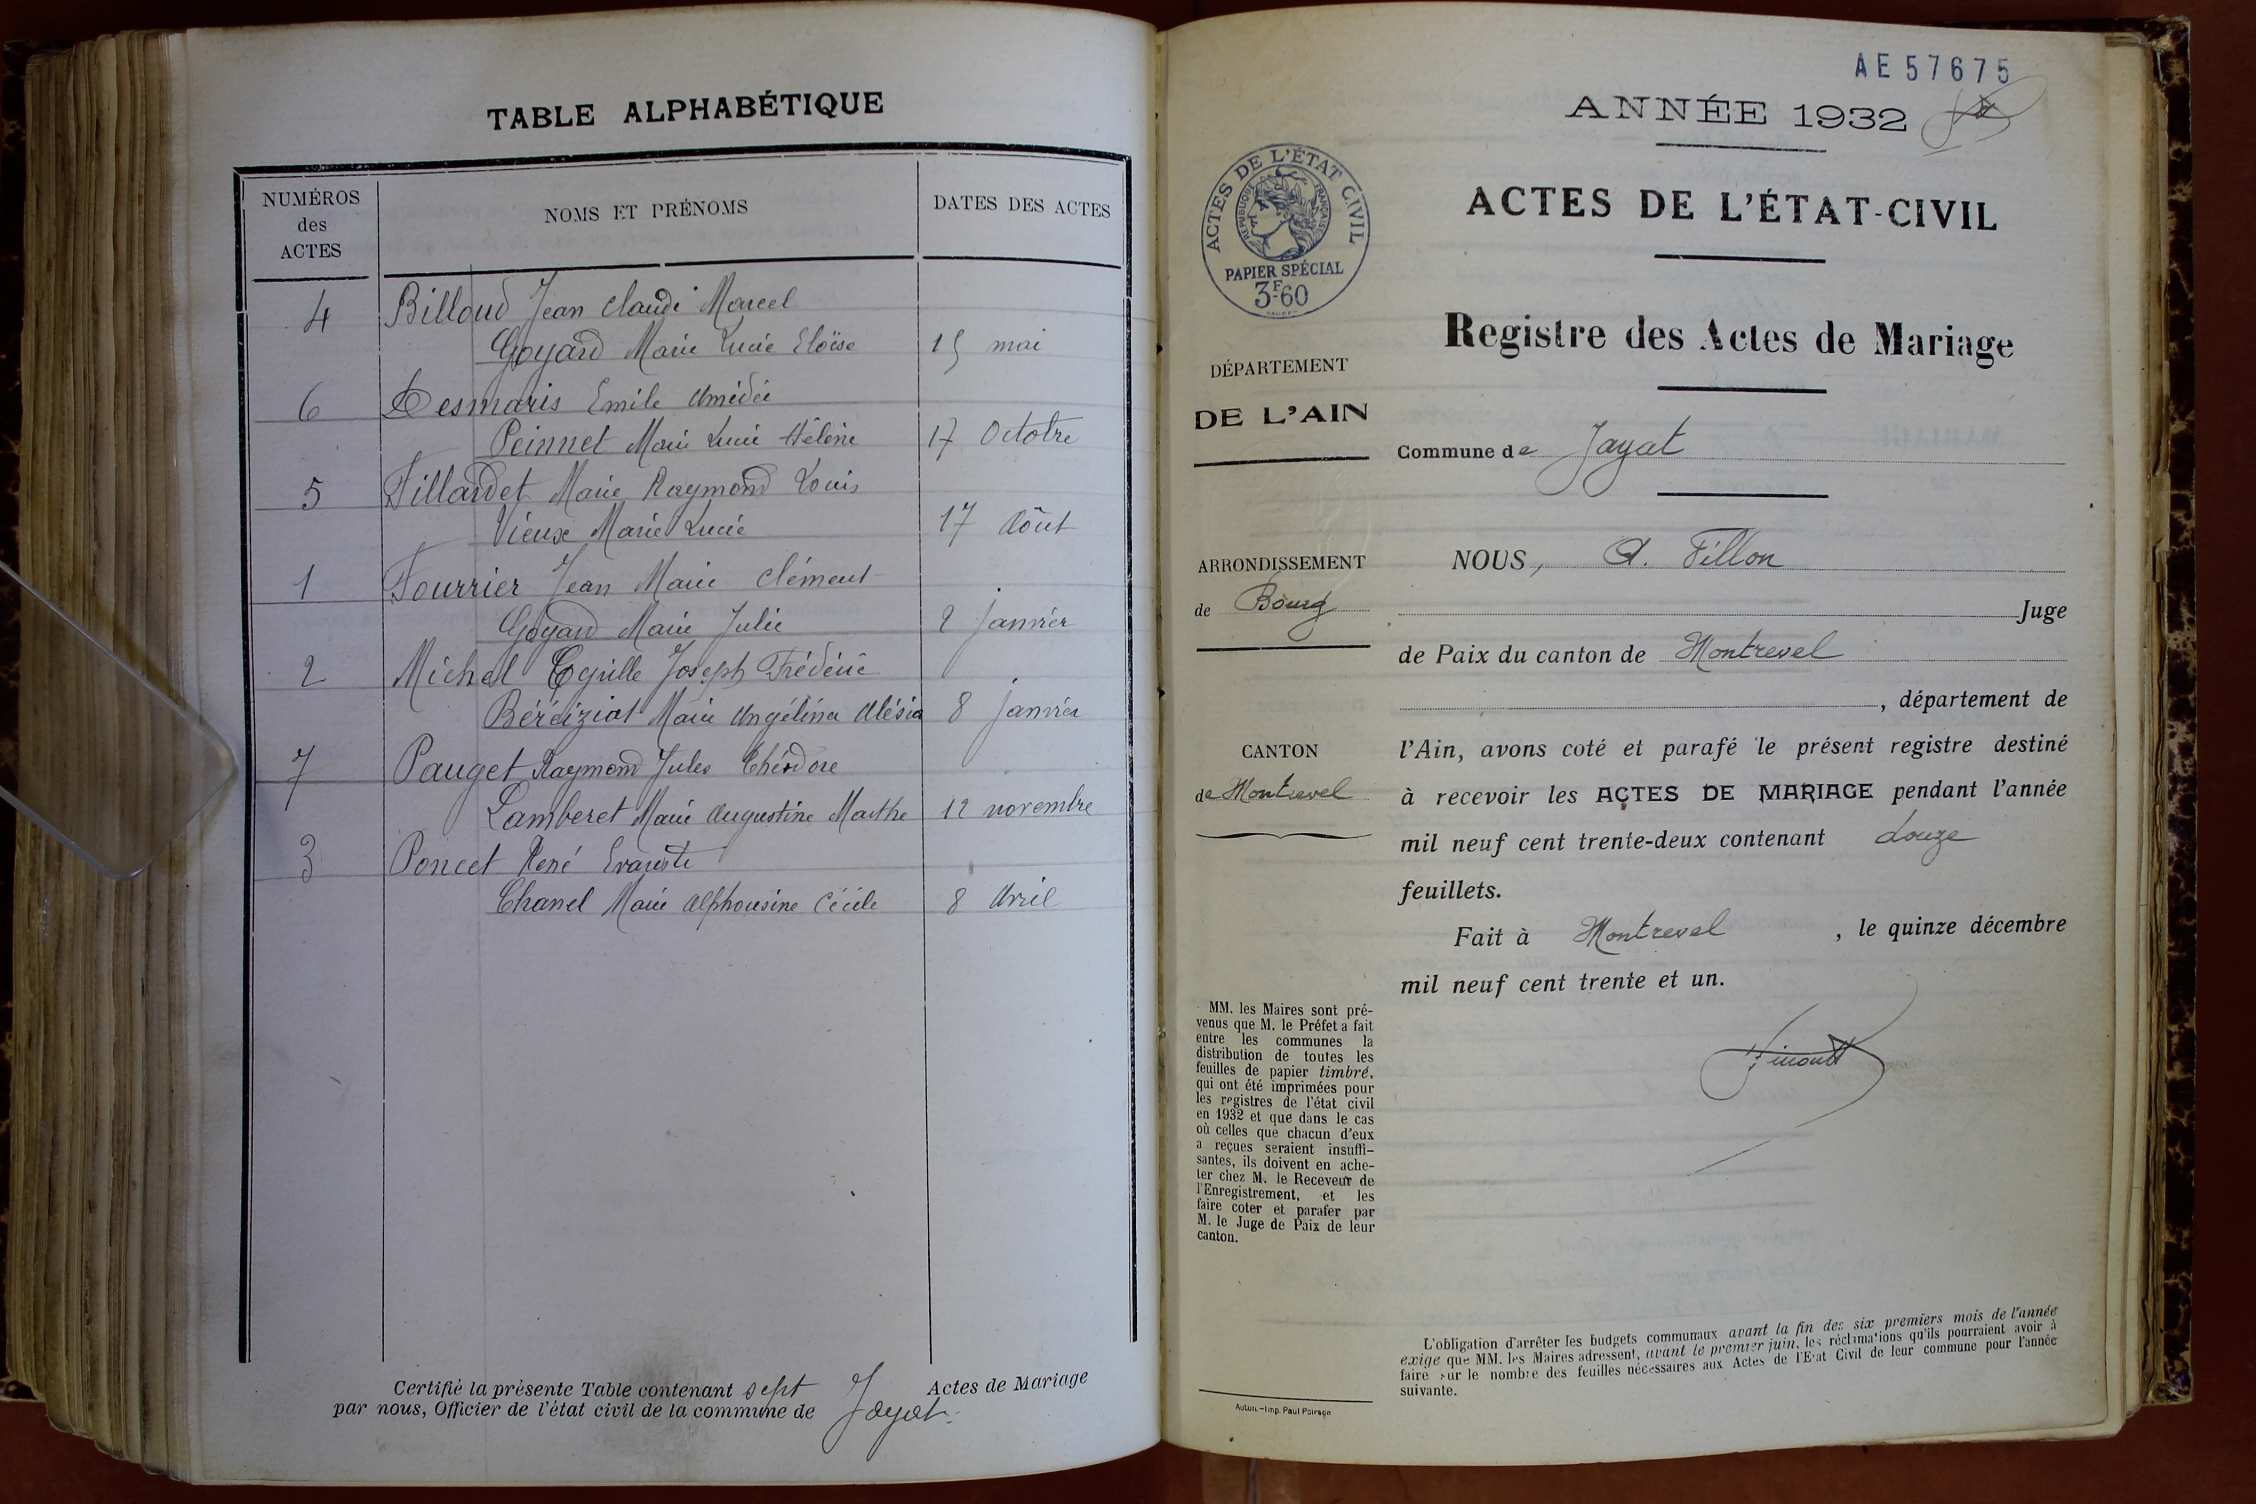 TABLE ALPHABÉTIQUE
NUMÉROS des ACTES
NOMS ET PRÉNOMS
DATES DES ACTES
4 Billoud Jean Claude Marcel
Goyard Marie Lucie Eloïse 15 mai
6 Desmaris Emile Amédée
Peinnet Marie Lucie Hélène 17 Octobre
5 Tillardet Marie Raymond Louis
Vieux Marie Lucie 17 Août
1 Fourrier Jean Marie Clément
Goyard Marie Julie 2 janvier
2 Michel Cyrille Joseph Frédéric
Béréiziat Marie Angélina Alésia 8 janvier
7 Pauget Raymond Jules Théodore
Lamberet Marie Augustine Marthe 12 novembre
3 Poncet René Evariste
Chanel Marie Alphonsine Cécile 8 Avril
Certifié la présente Table contenant sept Actes de Mariage
par nous, Officier de l'état civil de la commune de Jayat.
AE 57675
ANNÉE 1932
ACTES DE L'ÉTAT-CIVIL
Registre des Actes de Mariage
Commune de Jayat
NOUS, A. Fillon
Juge
de Paix du canton de Montrevel
, département de
l'Ain, avons coté et parafé le présent registre destiné
à recevoir les ACTES DE MARIAGE pendant l'année
mil neuf cent trente-deux contenant douze
feuillets.
Fait à Montrevel , le quinze décembre
mil neuf cent trente et un.
ACTES DE L'ÉTAT CIVIL
RÉPUBLIQUE FRANÇAISE
PAPIER SPÉCIAL
3F60
DÉPARTEMENT
DE L'AIN
ARRONDISSEMENT
de Bourg
CANTON
de Montrevel
MM. les Maires sont pré-
venus que M. le Préfet a fait
entre les communes la
distribution de toutes les
feuilles de papier timbré,
qui ont été imprimées pour
les registres de l'état civil
en 1932 et que dans le cas
où celles que chacun d'eux
a reçues seraient insuffi-
santes, ils doivent en ache-
ter chez M. le Receveur de
l'Enregistrement, et les
faire coter et parafer par
M. le Juge de Paix de leur
canton.
L'obligation d'arrêter les budgets communaux avant la fin des six premiers mois de l'année
exige que MM. les Maires adressent, avant le premier juin, les réclamations qu'ils pourraient avoir à
faire sur le nombre des feuilles nécessaires aux Actes de l'Etat Civil de leur commune pour l'année
suivante.
Autun. - Imp. Paul Poirson